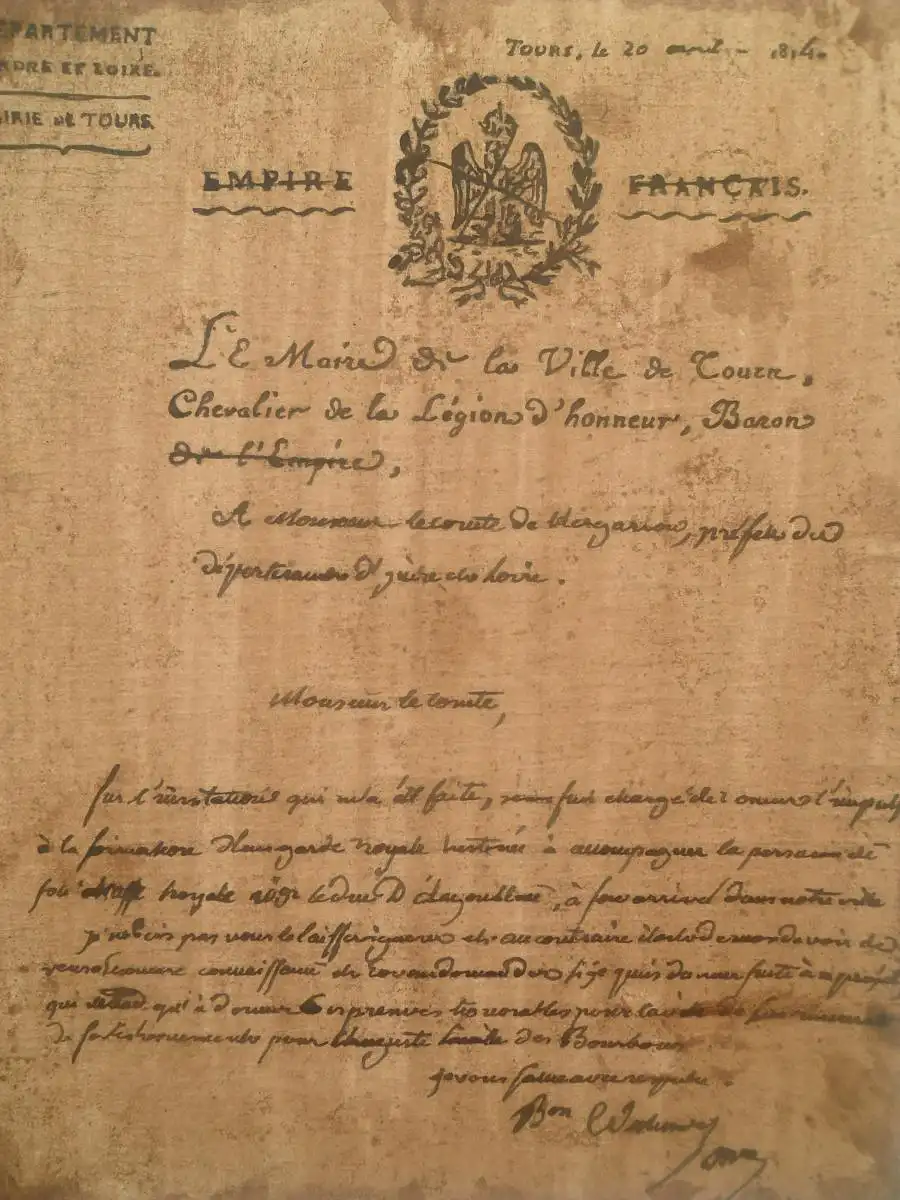 EPARTEMENT
NDRE ET LOIRE.
IRIE DE TOURS
TOURS, le 20 avril 1814.
EMPIRE FRANÇAIS.
LE Maire de la Ville de Tours,
Chevalier de la Légion d'honneur, Baron
de l'Empire,
A Monsieur le comte de Kergariou, préfet du
département d'indre et loire.
Monsieur le comte,
sur l'invitation qui m'a été faite, chargé de donner l'impuls
à la formation d'une garde royale destinée à accompagner la personne de
son altesse royale le duc D'angoulême, à son arrivée dans notre ville
je ne dois pas vous le laisser ignorer et au contraire il est de mon devoir de
connaissance et de vous demander si je puis donner suite à
qui qu'à donner des preuves
pour l'auguste famille des Bourbons.
je vous salue avec respect.
Bon